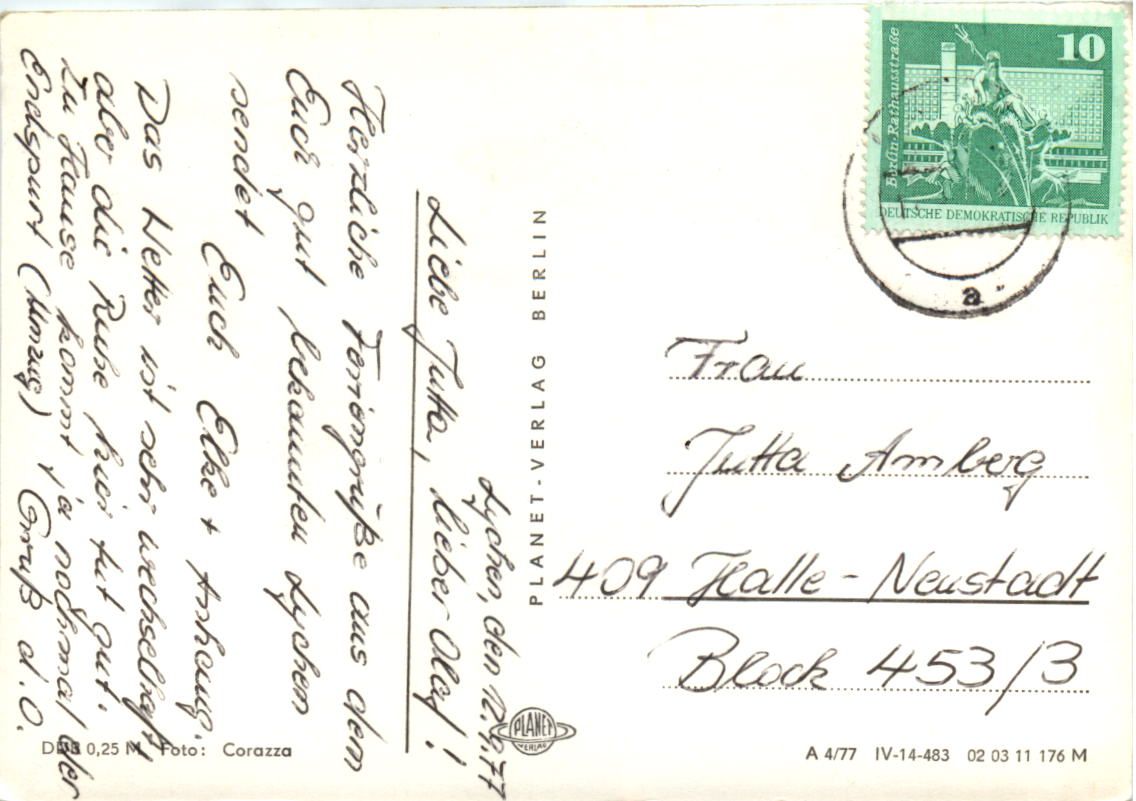 Lychen, den 12.9.77
Liebe Jutta, lieber Olaf!
Herzliche Feriengrüße aus dem
Euch gut bekannten Lychen
sendet
Euch Elke + Anhang.
Das Wetter ist sehr wechselhaft
aber die Ruhe hier tut gut.
Zu Hause kommt ja nochmal der
Endspurt (Umzug) Gruß d. O.
DDR 0,25 M Foto: Corazza
PLANET-VERLAG BERLIN
PLANET
VERLAG
10
Berlin·Rathausstraße
DEUTSCHE DEMOKRATISCHE REPUBLIK
a
Frau
Jutta Amberg
409 Halle-Neustadt
Block 453/3
A 4/77 IV-14-483 02 03 11 176 M